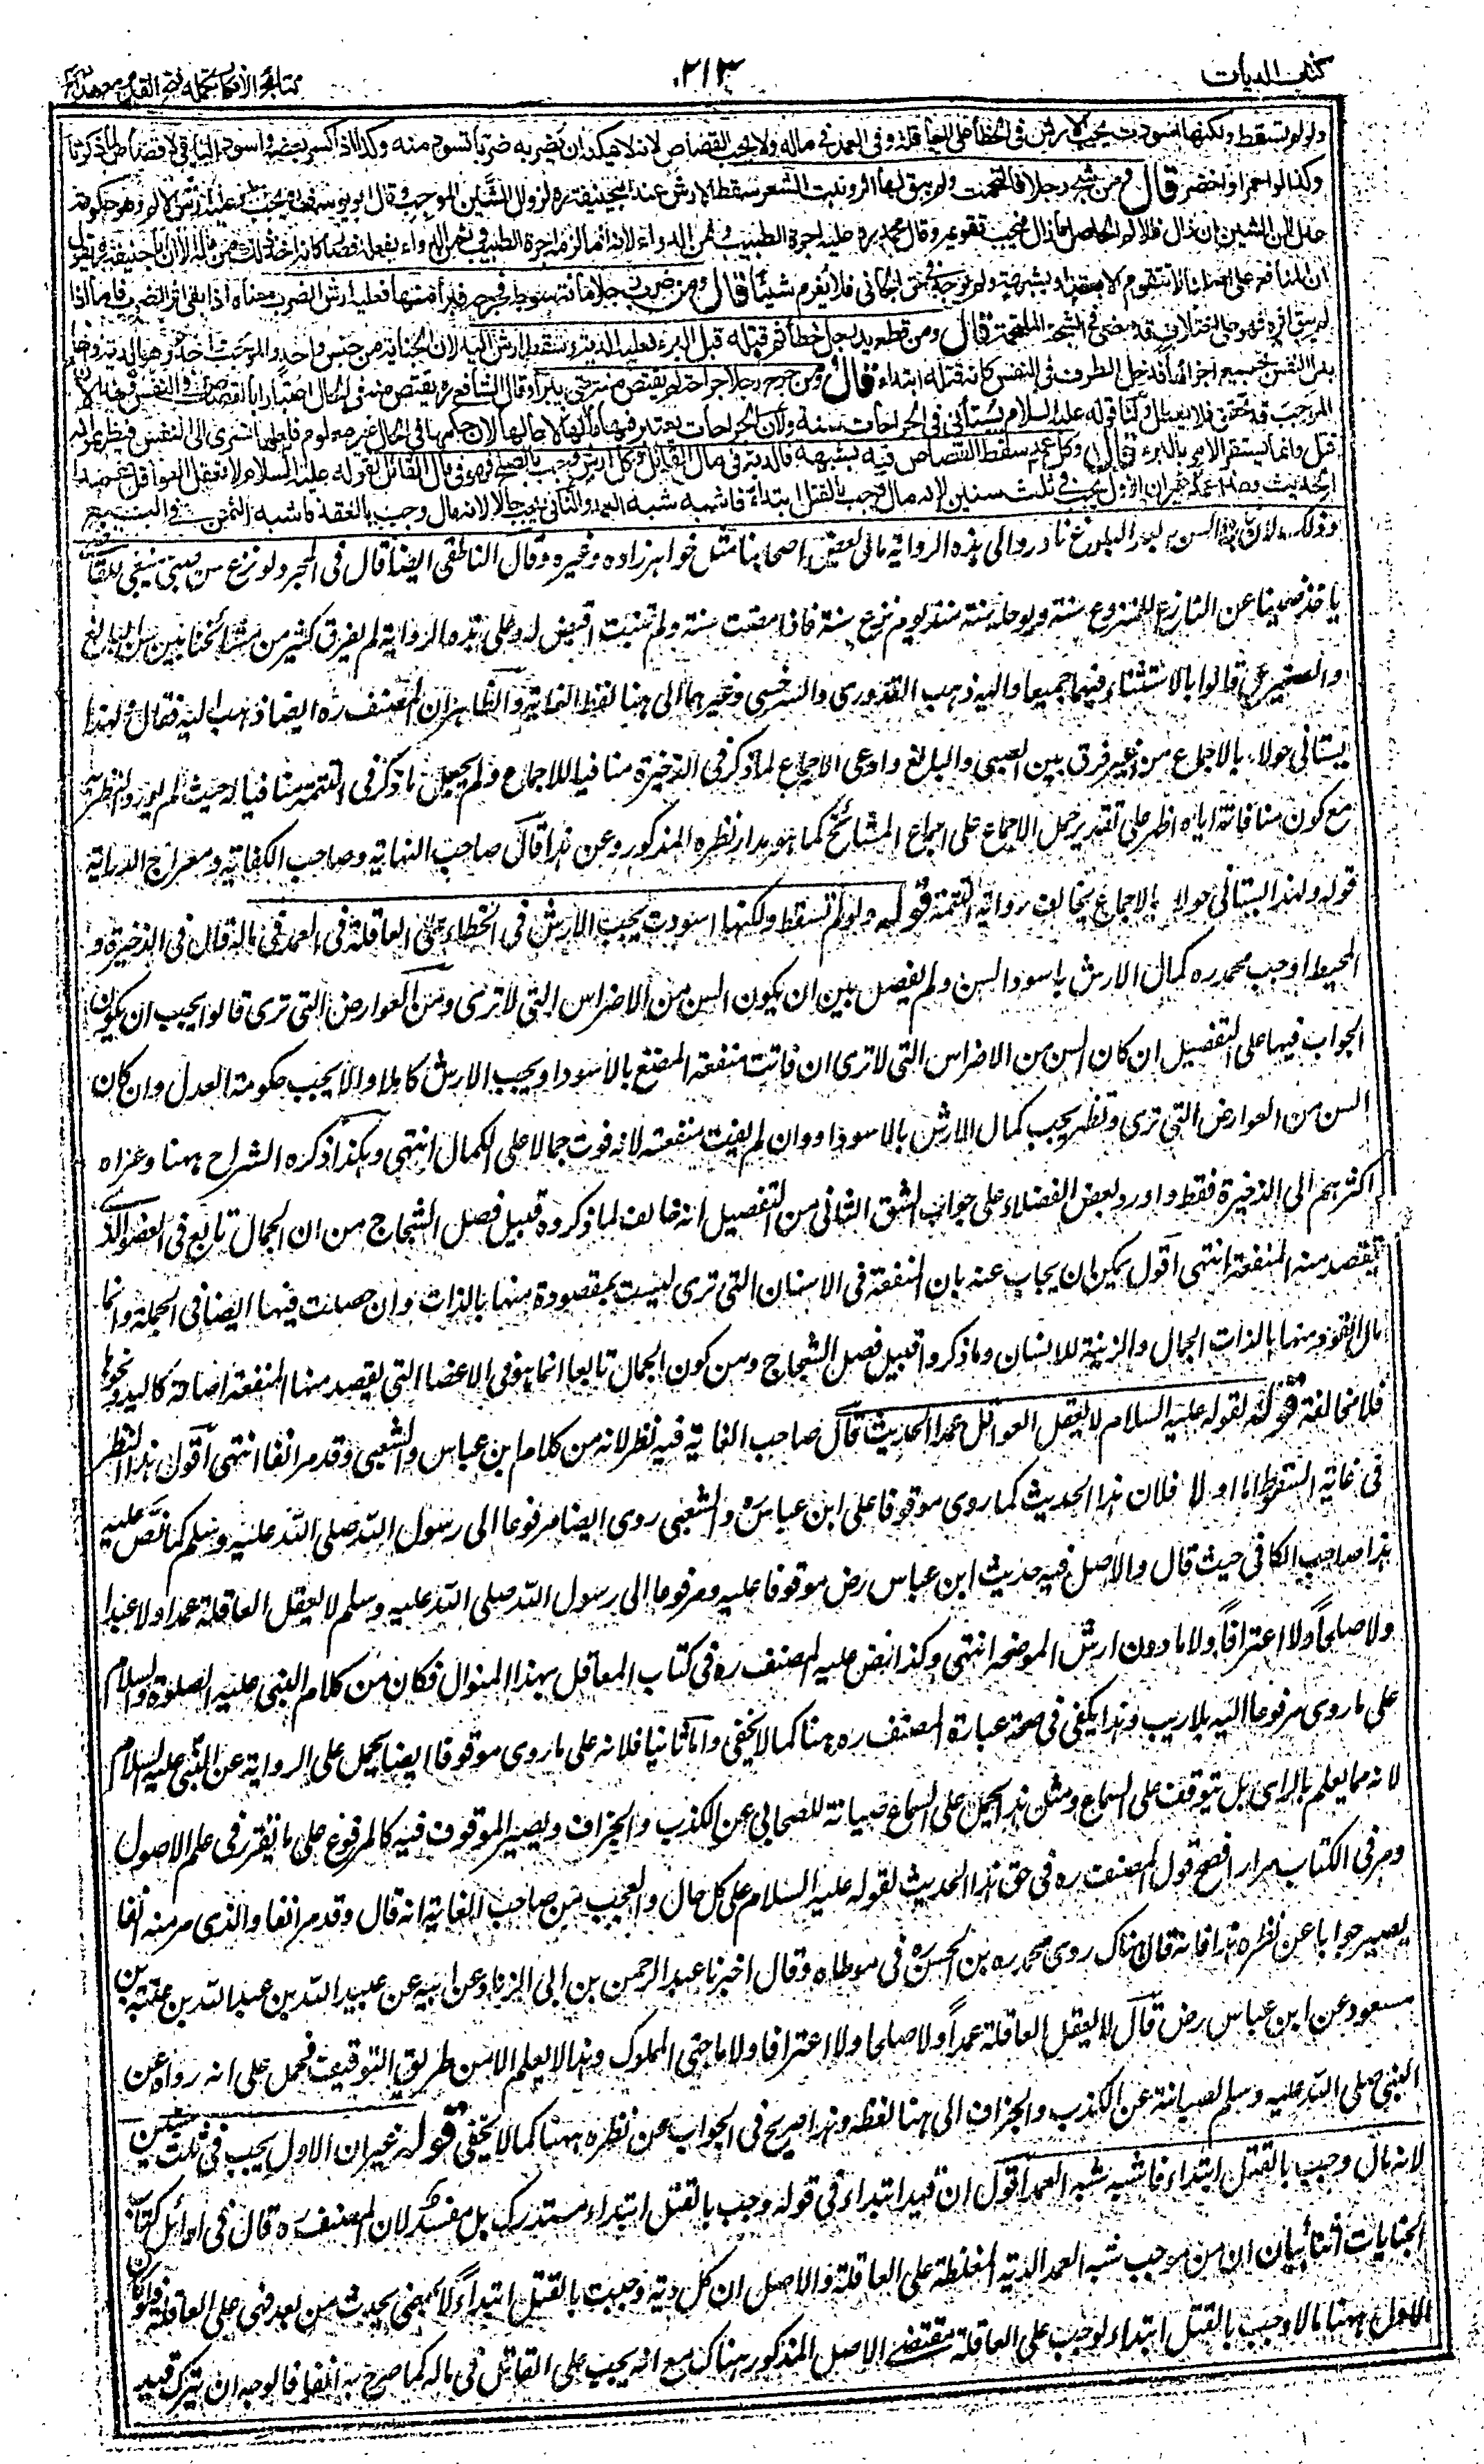 كتاب الديات
٢١٣
نتائج الافكار تكملة فتح القدير مع هداية
ولو لم تسقط ولكنها اسودت يجب الارش فى الخطأ على العاقلة وفى العمد فى ماله ولا يجب القصاص لانه لا يمكنه ان يضربه ضربا تسود منه وكذا اذا كسر بعضه واسود الباقى لا قصاص لما ذكرنا
وكذا لو احمر او اخضر قال ومن شج رجلا فالتحمت ولم يبق لها اثر ونبت الشعر سقط الارش عند ابى حنيفة ره لزوال الشين الموجب وقال ابو يوسف ره يجب عليه ارش الالم وهو حكومة
عدل لان الشين ان زال فالالم الحاصل ما زال فيجب تقويمه وقال محمد ره عليه اجرة الطبيب وثمن الدواء لانه انما لزمه اجرة الطبيب وثمن الدواء بفعله فصار كانه اخذ ذلك من ماله الا ان ابا حنيفة ره يقول
ان المنافع على اصلنا لا تتقوم الا بعقد او بشبهة ولم يوجد فى حق الجانى فلا يغرم شيئا قال ومن ضرب رجلا مائة سوط فجرحه فبرأ منها فعليه ارش الضرب معناه اذا بقى اثر الضرب فاما اذا
لم يبق اثره فهو على اختلاف قد مضى فى الشجة الملتحمة قال ومن قطع يد رجل خطأ ثم قتله قبل البرء فعليه الدية وسقط ارش اليد لان الجناية من جنس واحد والموجب واحد وهو الدية وانها
بدل النفس بجميع اجزائها فدخل الطرف فى النفس كانه قتله ابتداء قال ومن جرح رجلا جراحة لم يقتص منه حتى يبرأ وقال الشافعى ره يقتص منه فى الحال اعتبارا بالقصاص فى النفس وهذا لان
الموجب قد تحقق فلا يعطل ولنا قوله عليه السلام يستأنى فى الجراحات سنة ولان الجراحات يعتبر فيها مآلها لا حالها لان حكمها فى الحال غير معلوم فلعلها تسرى الى النفس فيظهر انه
قتل وانما يستقر الامر بالبرء قال وكل عمد سقط القصاص فيه بشبهة فالدية فى مال القاتل وكل ارش وجب بالصلح فهو فى مال القاتل لقوله عليه السلام لا تعقل العواقل عمدا
الحديث وهذا عمد غير ان الاول يجب فى ثلث سنين لانه مال وجب بالقتل ابتداء فاشبه شبه العمد والثانى يجب حالا لانه مال وجب بالعقد فاشبه الثمن فى البيع
وذلك لان نبات السن بعد البلوغ نادر والى هذه الرواية مال بعض اصحابنا مثل خواهر زاده وغيره وقال الناطفى ايضا قال فى المجرد لو نزع سن صبى ينبغى للقاضى ان
ياخذ ضمينا عن النازع للمنزوع سنة ويوجله سنة منذ يوم نزع سنة فاذا مضت سنة ولم تنبت اقتص له وعلى هذه الرواية لم يفرق كثير من مشائخنا بين سن البالغ
والصغير حتى قالوا بالاستيناء فيهما جميعا واليه ذهب القدورى والسرخسى وغيرهما الى هنا لفظ النهاية والظاهر ان المصنف ره ايضا ذهب اليه فقال ولهذا
يستانى حولا بالاجماع من غير فرق بين الصبى والبالغ وادعى الاجماع لما ذكر فى الذخيرة منافيا للاجماع ولم يجعل ما ذكر فى التتمة منافيا له حيث لم يورد النظر به
مع كون منافاته اياه اظهر على تقدير حمل الاجماع على اجماع المشائخ كما هو مدار نظره المذكور وعن هذا قال صاحب النهاية وصاحب الكفاية ومعراج الدراية
قوله ولهذا يستانى حولا بالاجماع يخالف رواية التتمة قوله ولو لم تسقط ولكنها اسودت يجب الارش فى الخطاء على العاقلة وفى العمد فى ماله قال فى الذخيرة و
المحيط اوجب محمد ره كمال الارش باسوداد السن ولم يفصل بين ان يكون السن من الاضراس التى لا ترى ومن العوارض التى ترى قالوا يجب ان يكون
الجواب فيها على التفصيل ان كان السن من الاضراس التى لا ترى ان فاتت منفعة المضغ بالاسوداد يجب الارش كاملا والا يجب حكومة العدل وان كان
السن من العوارض التى ترى وتظهر يجب كمال الارش بالاسوداد وان لم يفت منفعته لانه فوت جمالا على الكمال انتهى وهكذا ذكره الشراح ههنا وعزاه
اكثرهم الى الذخيرة فقط واورد بعض الفضلاء على جواب الشق الثانى من التفصيل انه خالف لما ذكروه قبيل فصل الشجاج من ان الجمال تابع فى العضو الذى
يقصد منه المنفعة انتهى اقول يمكن ان يجاب عنه بان المنفعة فى الاسنان التى ترى ليست بمقصودة منها بالذات وان حصلت فيها ايضا فى الجملة وانما
المقصود منها بالذات الجمال والزينة للانسان وما ذكروا قبيل فصل الشجاج من كون الجمال تابعا انما هو فى الاعضا التى يقصد منها المنفعة اصالة كاليد ونحوها
فلا مخالفة قوله لقوله عليه السلام لا يعقل العواقل عمدا الحديث قال صاحب الغاية فيه نظر لانه من كلام ابن عباس والشعبى وقد مر انفا انتهى اقول هذا النظر
فى غاية السقوط اما اولا فلان هذا الحديث كما روى موقوفا على ابن عباس ره والشعبى روى ايضا مرفوعا الى رسول الله صلى الله عليه وسلم كما نص عليه
هذا صاحب الكافى حيث قال والاصل فيه حديث ابن عباس رض موقوفا عليه ومرفوعا الى رسول الله صلى الله عليه وسلم لا يعقل العاقلة عمدا ولا عبدا
ولا صلحا ولا اعترافا ولا ما دون ارش الموضحه انتهى وكذا نص عليه المصنف ره فى كتاب المعاقل بهذا المنوال فكان من كلام النبى عليه الصلوة والسلام
على ما روى مرفوعا اليه بلا ريب وهذا يكفى فى صحة عبارة المصنف ره ههنا كما لا يخفى واما ثانيا فلانه على ما روى موقوفا ايضا يحمل على الرواية عن النبى عليه السلام
لانه مما يعلم بالراى بل يتوقف على السماع ومثل هذا يحمل على السماع صيانة للصحابى عن الكذب والجزاف ويصير الموقوف فيه كالمرفوع على ما تقرر فى علم الاصول
ومر فى الكتاب مرارا فصح قول المصنف ره فى حق هذا الحديث لقوله عليه السلام على كل حال والعجب من صاحب الغاية انه قال وقد مر انفا والذى مر منه انفا
يصير جوابا عن نظره هذا فانه قال هناك روى محمد ره بن الحسن ره فى موطاه وقال اخبرنا عبد الرحمن بن ابى الزناد عن ابيه عن عبيد الله بن عبد الله بن عتبة بن
مسعود عن ابن عباس رض قال لا يعقل العاقلة عمدا ولا صلحا ولا اعترافا ولا ما جنى المملوك وهذا لا يعلم الا من طريق التوقيف فحمل على انه رواه عن
النبى صلى الله عليه وسلم لصيانته عن الكذب والجزاف الى هنا لفظه وهذا صريح فى الجواب عن نظره ههنا كما لا يخفى قوله غير ان الاول يجب فى ثلث سنين
لانه مال وجب بالقتل ابتداء فاشبه شبه العمد اقول ان قيد ابتداء فى قوله وجب بالقتل ابتداء مستدرك بل مفسد لان المصنف ره قال فى اوائل كتاب
الجنايات اثناء بيان ان من موجب شبه العمد الدية المغلظة على العاقلة والاصل ان كل دية وجبت بالقتل ابتداء لا بمعنى يحدث من بعد فهى على العاقلة فلو كان
الاول ههنا مالا وجب بالقتل ابتداء لوجب على العاقلة بمقتضى الاصل المذكور هناك مع انه يجب على القاتل فى ماله كما صرح به انفا فالوجه ان يترك قيد